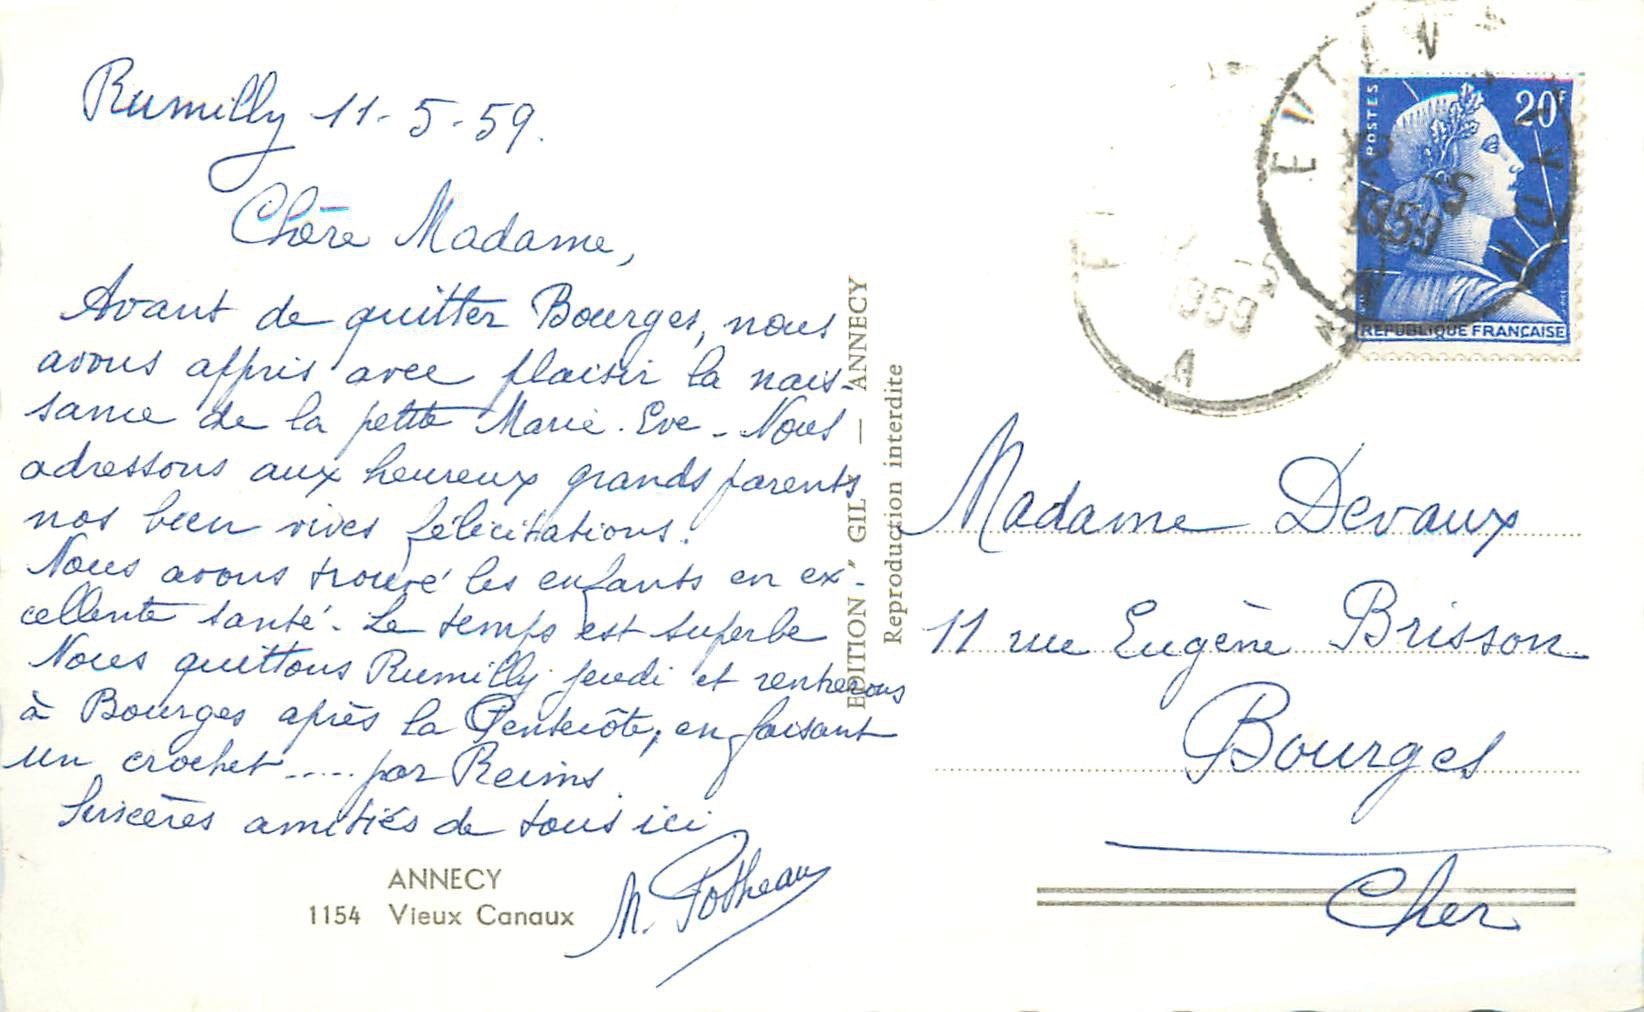 Rumilly 11-5-59.
Chère Madame,
Avant de quitter Bourges, nous
avons appris avec plaisir la nais-
sance de la petite Marie-Eve - Nous
adressons aux heureux grands parents
nos bien vives félicitations.
Nous avons trouvé les enfants en ex-
cellente santé - Le temps est superbe
Nous quittons Rumilly jeudi et rentrerons
à Bourges après la Pentecôte, en faisant
un crochet ..... par Reims
Sincères amitiés de tous ici
M. Potheau
ANNECY
1154 Vieux Canaux
EDITION "GIL" — ANNECY
Reproduction interdite
POSTES
20F
REPUBLIQUE FRANÇAISE
-5
1959
-5
1959
Madame Devaux
11 rue Eugène Brisson
Bourges
Cher